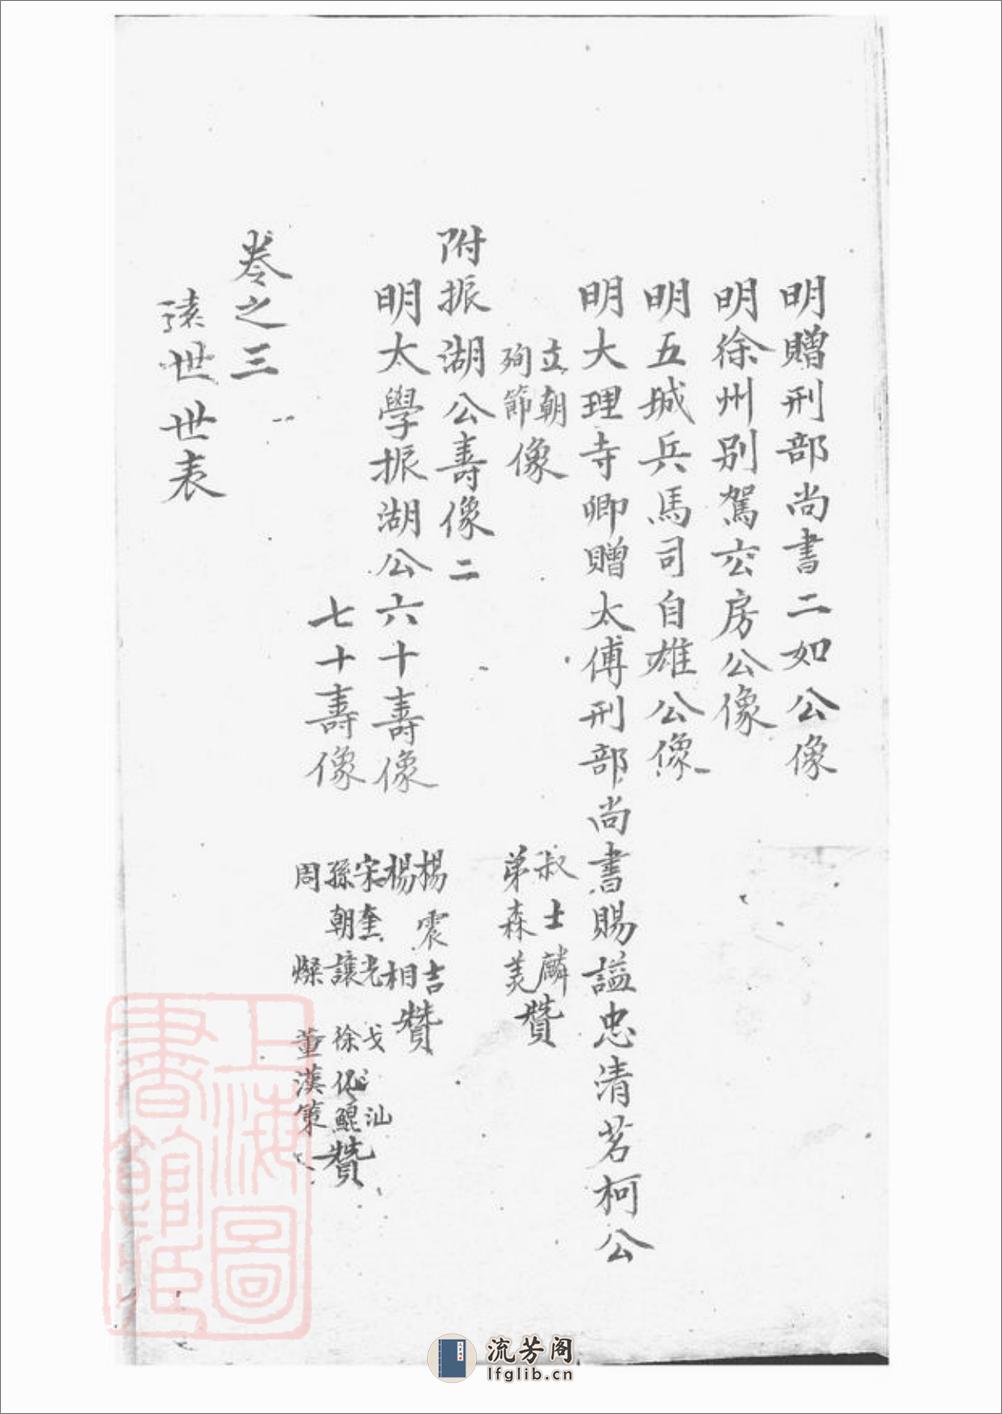 明贈刑部尚書二如公像
明徐州別駕玄房公像
明五城兵馬司自雄公像
明大理寺卿贈太傅刑部尚書賜謚忠清茗柯公
立朝
殉節像
叔士麟
弟森美贊
附振湖公壽像二
明太學振湖公六十壽像
楊震吉
楊相贊
七十壽像
宋奎光
孫朝讓
周燦
戈汕
徐化鯤
董漢策
贊
卷之三
遠世世表
上海圖
書館藏
流芳阁
lfglib.cn